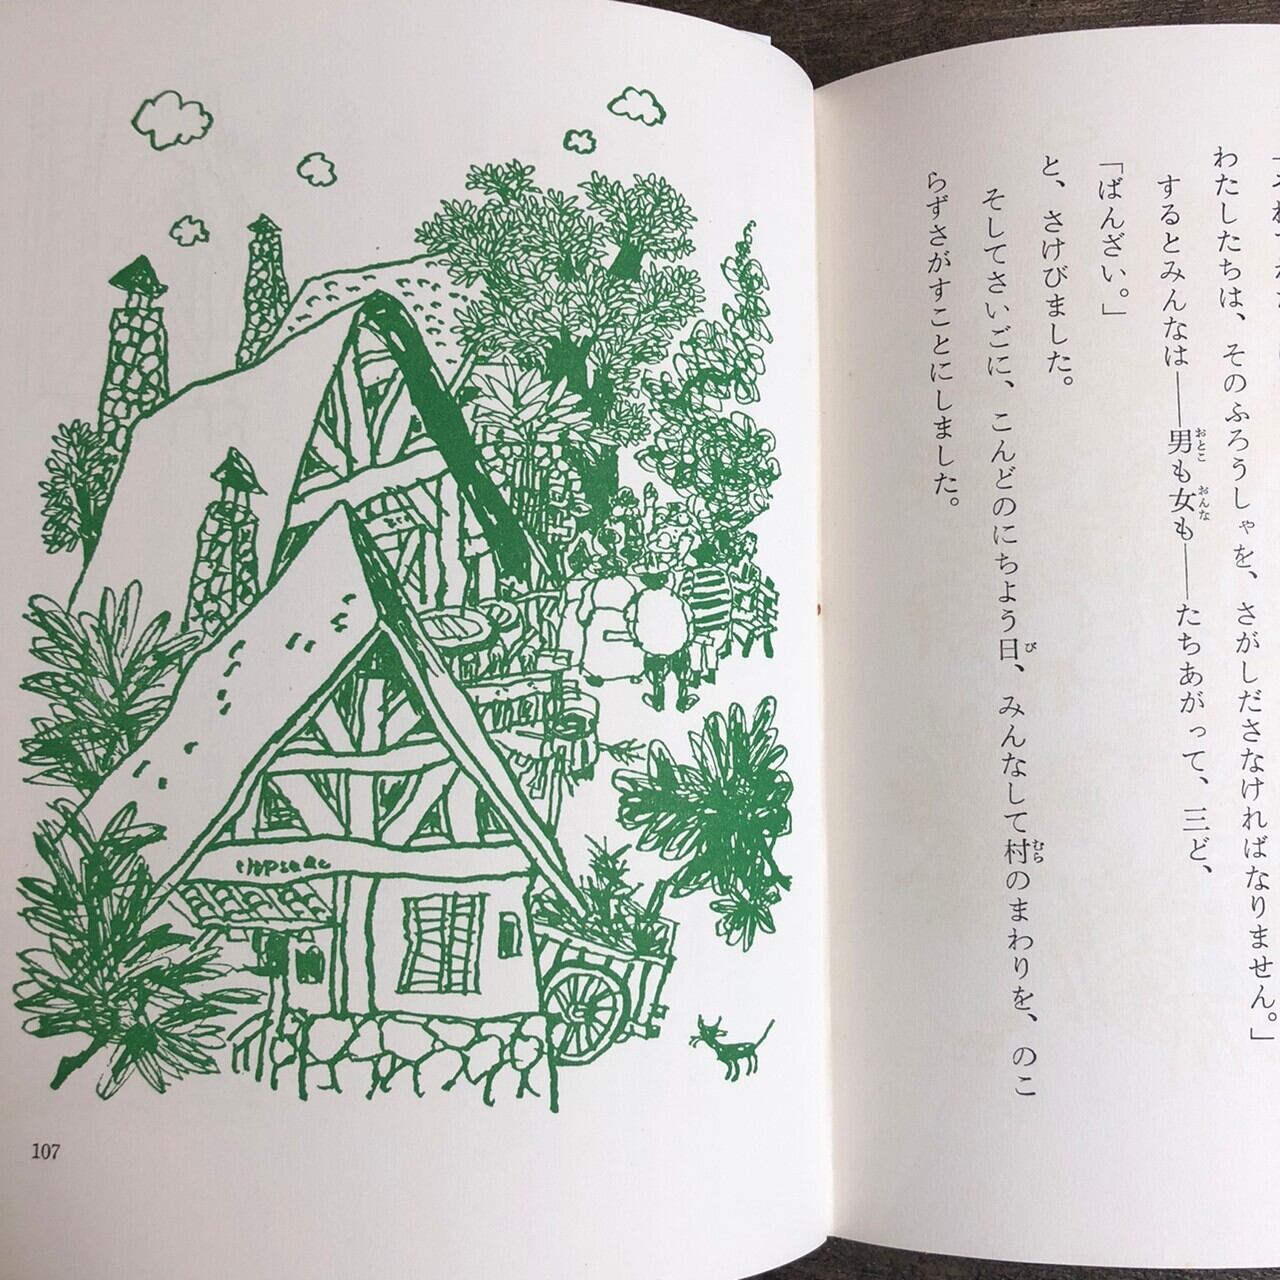 わたしたちは、そのふろうしゃを、さがしださなければなりません。」
するとみんなは――男も女も――たちあがって、三ど、
「ばんざい。」
と、さけびました。
そしてさいごに、こんどのにちよう日、みんなして村のまわりを、のこ
らずさがすことにしました。
107